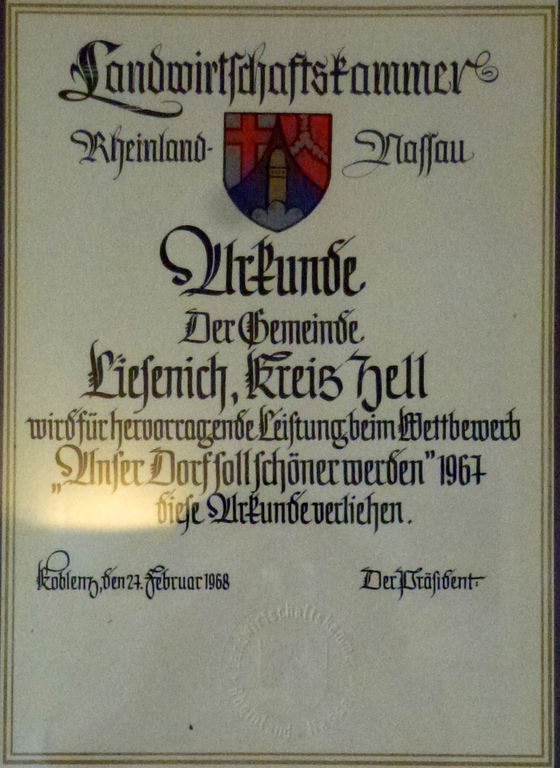 Landwirtschaftskammer
Rheinland- Nassau
Urkunde
Der Gemeinde
Liesenich, Kreis Zell
wird für hervorragende Leistung beim Wettbewerb
„Unser Dorf soll schöner werden" 1967
diese Urkunde verliehen.
Koblenz, den 27. Februar 1968 Der Präsident:
Landwirtschaftskammer
Rheinland-